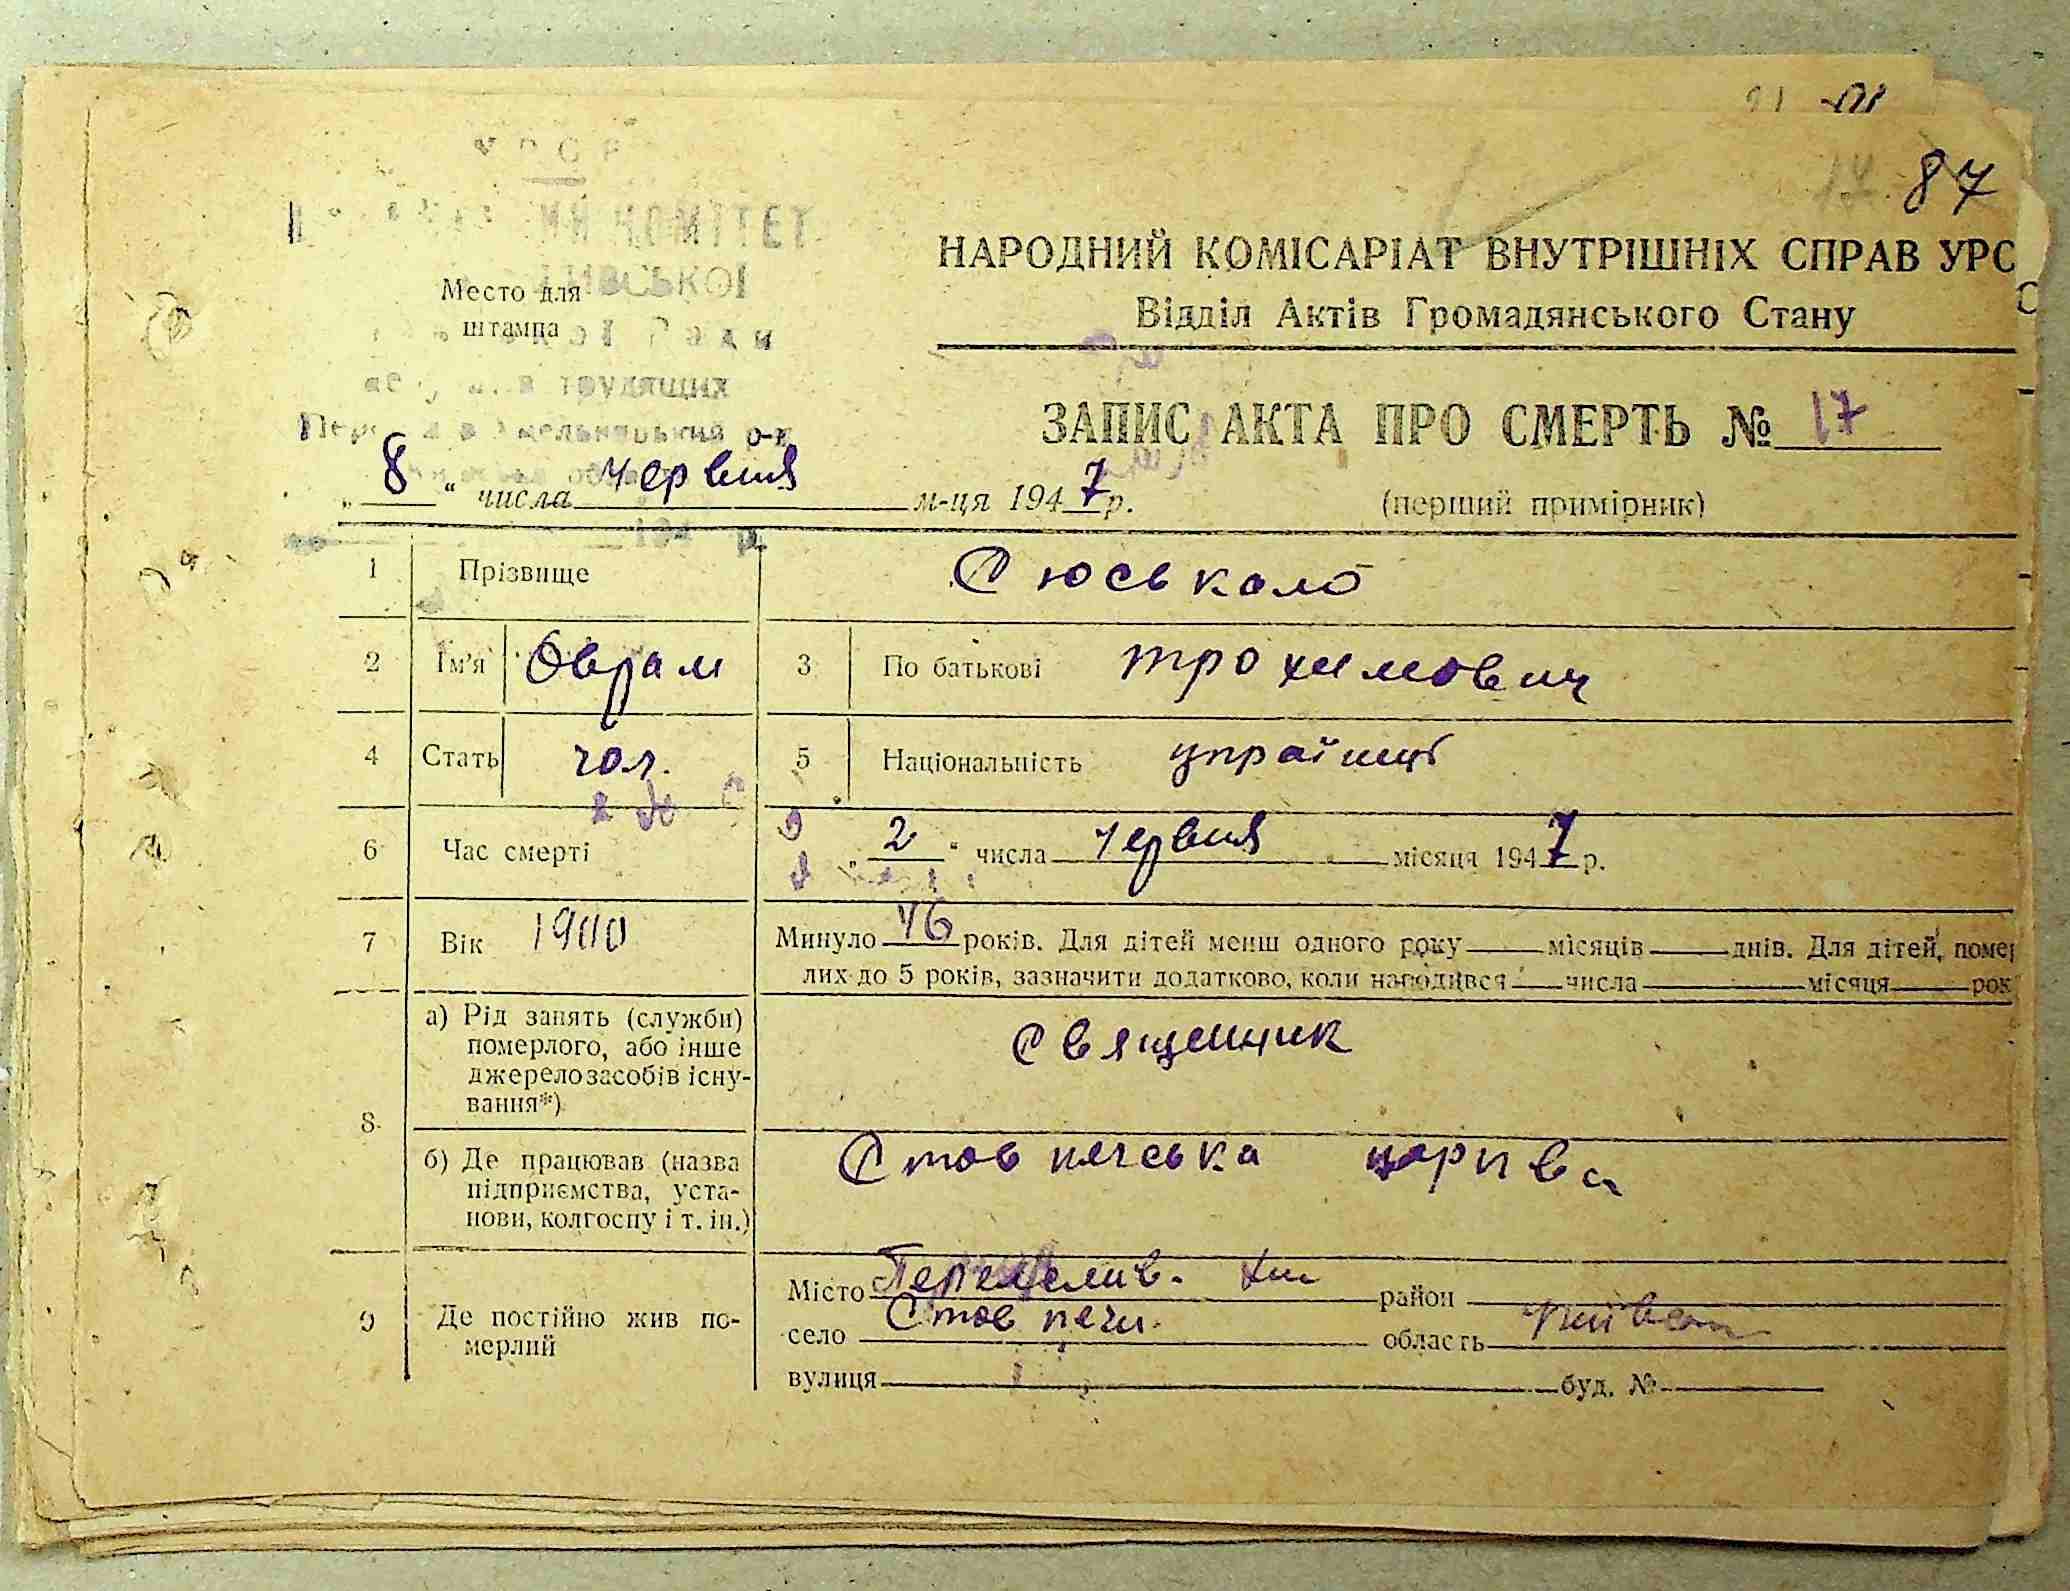 87
КОМІТЕТ
НАРОДНИЙ КОМІСАРІАТ ВНУТРІШНІХ СПРАВ УРС
Место для
штампа
Відділ Актів Громадянського Стану
трудящих
ЗАПИС АКТА ПРО СМЕРТЬ № 17
„8“ числа червня м-ця 1947 р. (перший примірник)
1 Прізвище Сюськало
2 Ім'я Оврам 3 По батькові трохимович
4 Стать чол. 5 Національність
6 Час смерті „2“ числа червня місяця 1947 р.
7 Вік 1900 Минуло 46 років. Для дітей менш одного року місяців днів. Для дітей, помер
лих до 5 років, зазначити додатково, коли народився числа місяця рок
8 а) Рід занять (служби)
померлого, або інше
джерело засобів існу-
вання*)
Священник
б) Де працював (назва
підприємства, уста-
нови, колгоспу і т. ін.)
Стовпячська церква
9 Де постійно жив по-
мерлий
Місто район
село Стовпяги область
вулиця буд. №